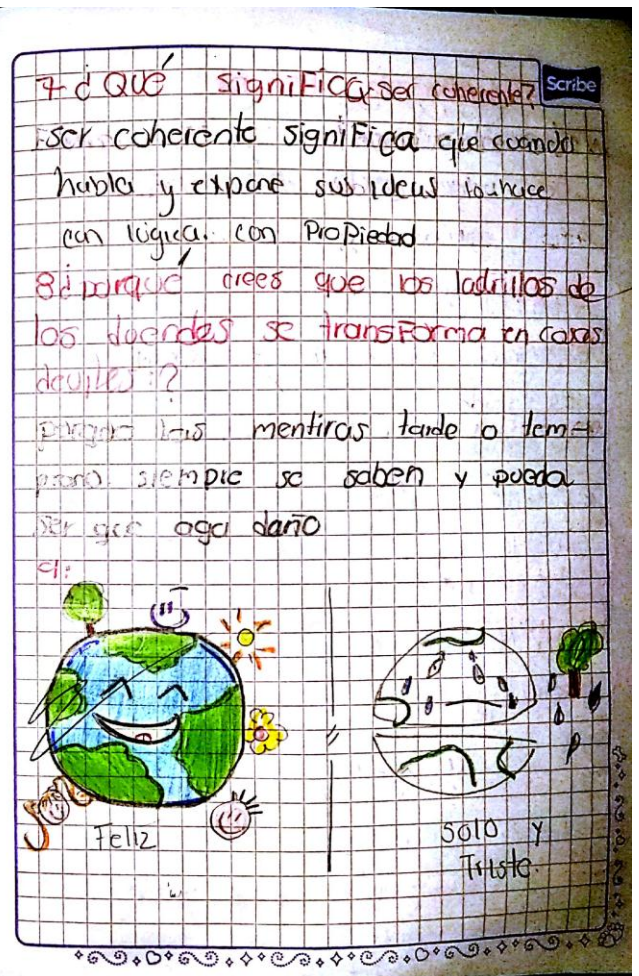 Scribe
7 ¿Qué significa ser coherente?
ser coherente significa que cuando
habla y expone sus ideas lo hace
con lógica. con Propiedad
8 ¿porqué crees que los ladrillos de
los duendes se transforma en casas
deviles?
porque las mentiras tarde o tem-
prano siempre se saben y pueda
ser que aga daño
9:
Feliz
solo y
Triste.